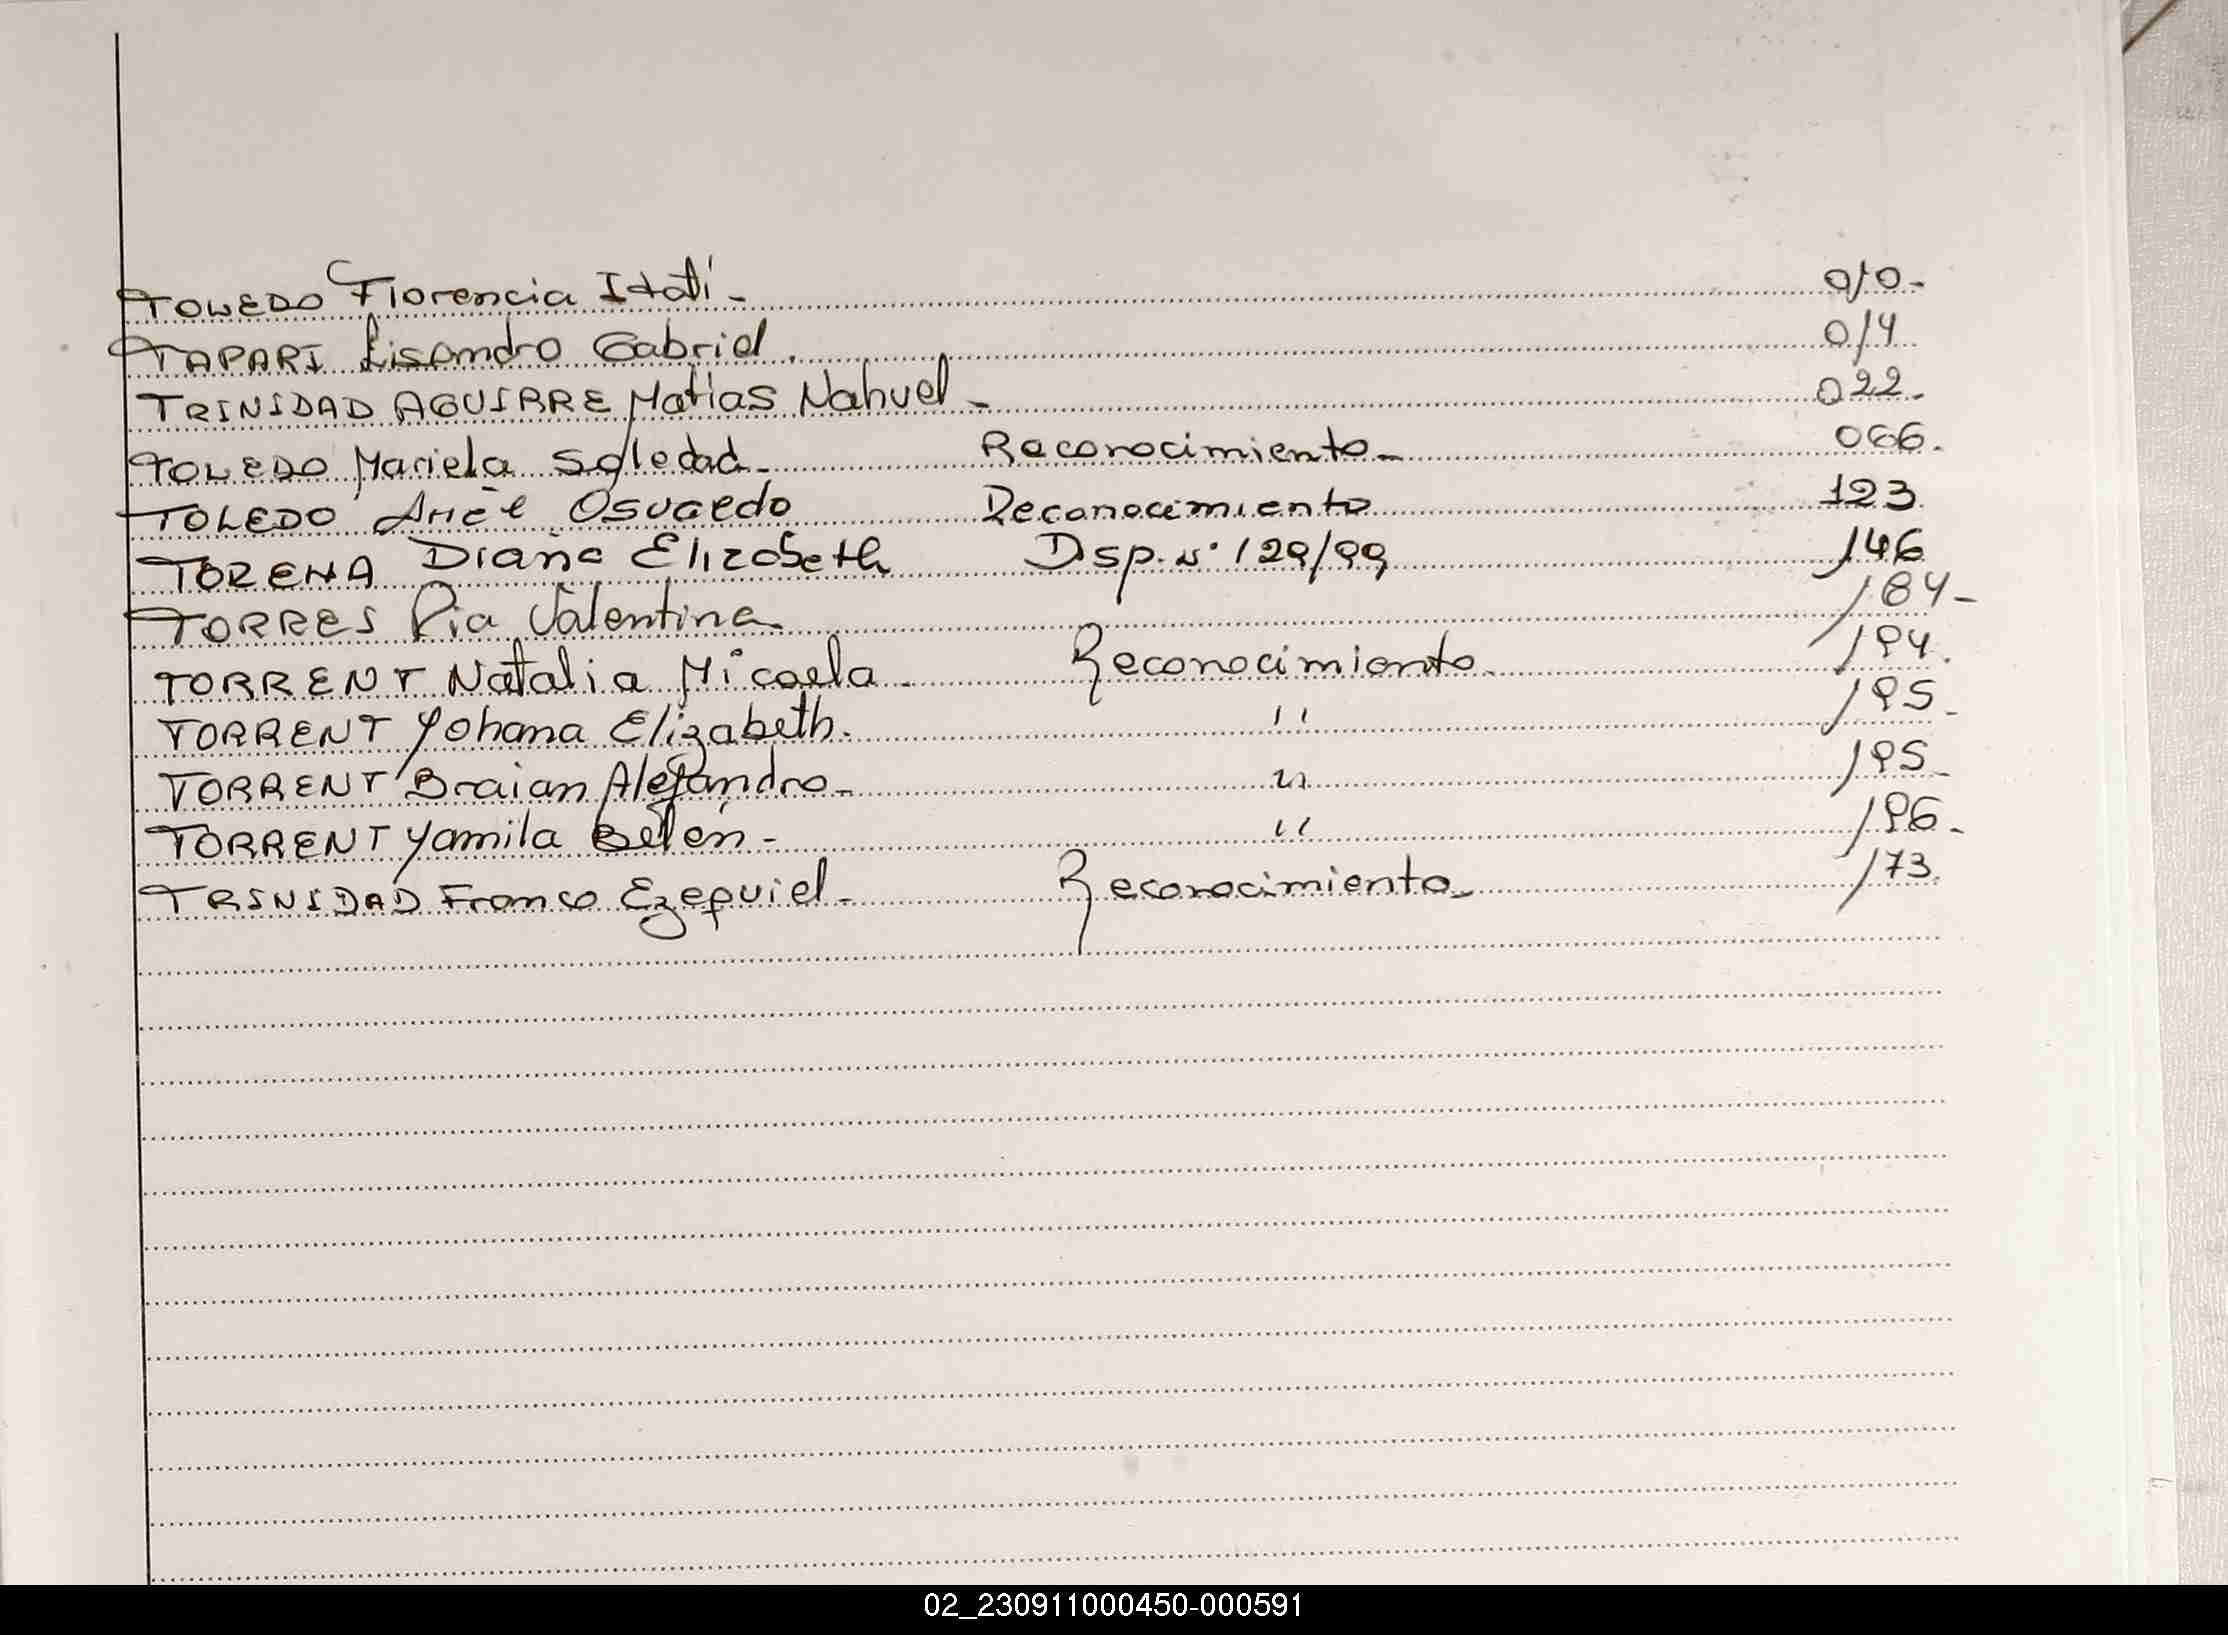 TOLEDO Florencia Itatí - 010-
TAPARI Lisandro Gabriel. 014
TRINIDAD AGUIRRE Matias Nahuel - 022-
TOLEDO Mariela Soledad - Reconocimiento - 066.
TOLEDO Ariel Osvaldo Reconocimiento 123
TORENA Diana Elizabeth Disp. N° 129/99 146
TORRES Pia Valentina 184-
TORRENT Natalia Micaela - Reconocimiento - 194.
TORRENT Yohana Elizabeth. " 195-
TORRENT Braian Alejandro - " 195-
TORRENT Yamila Belén - " 196-
TRINIDAD Franco Ezequiel - Reconocimiento - 173.
02_230911000450-000591